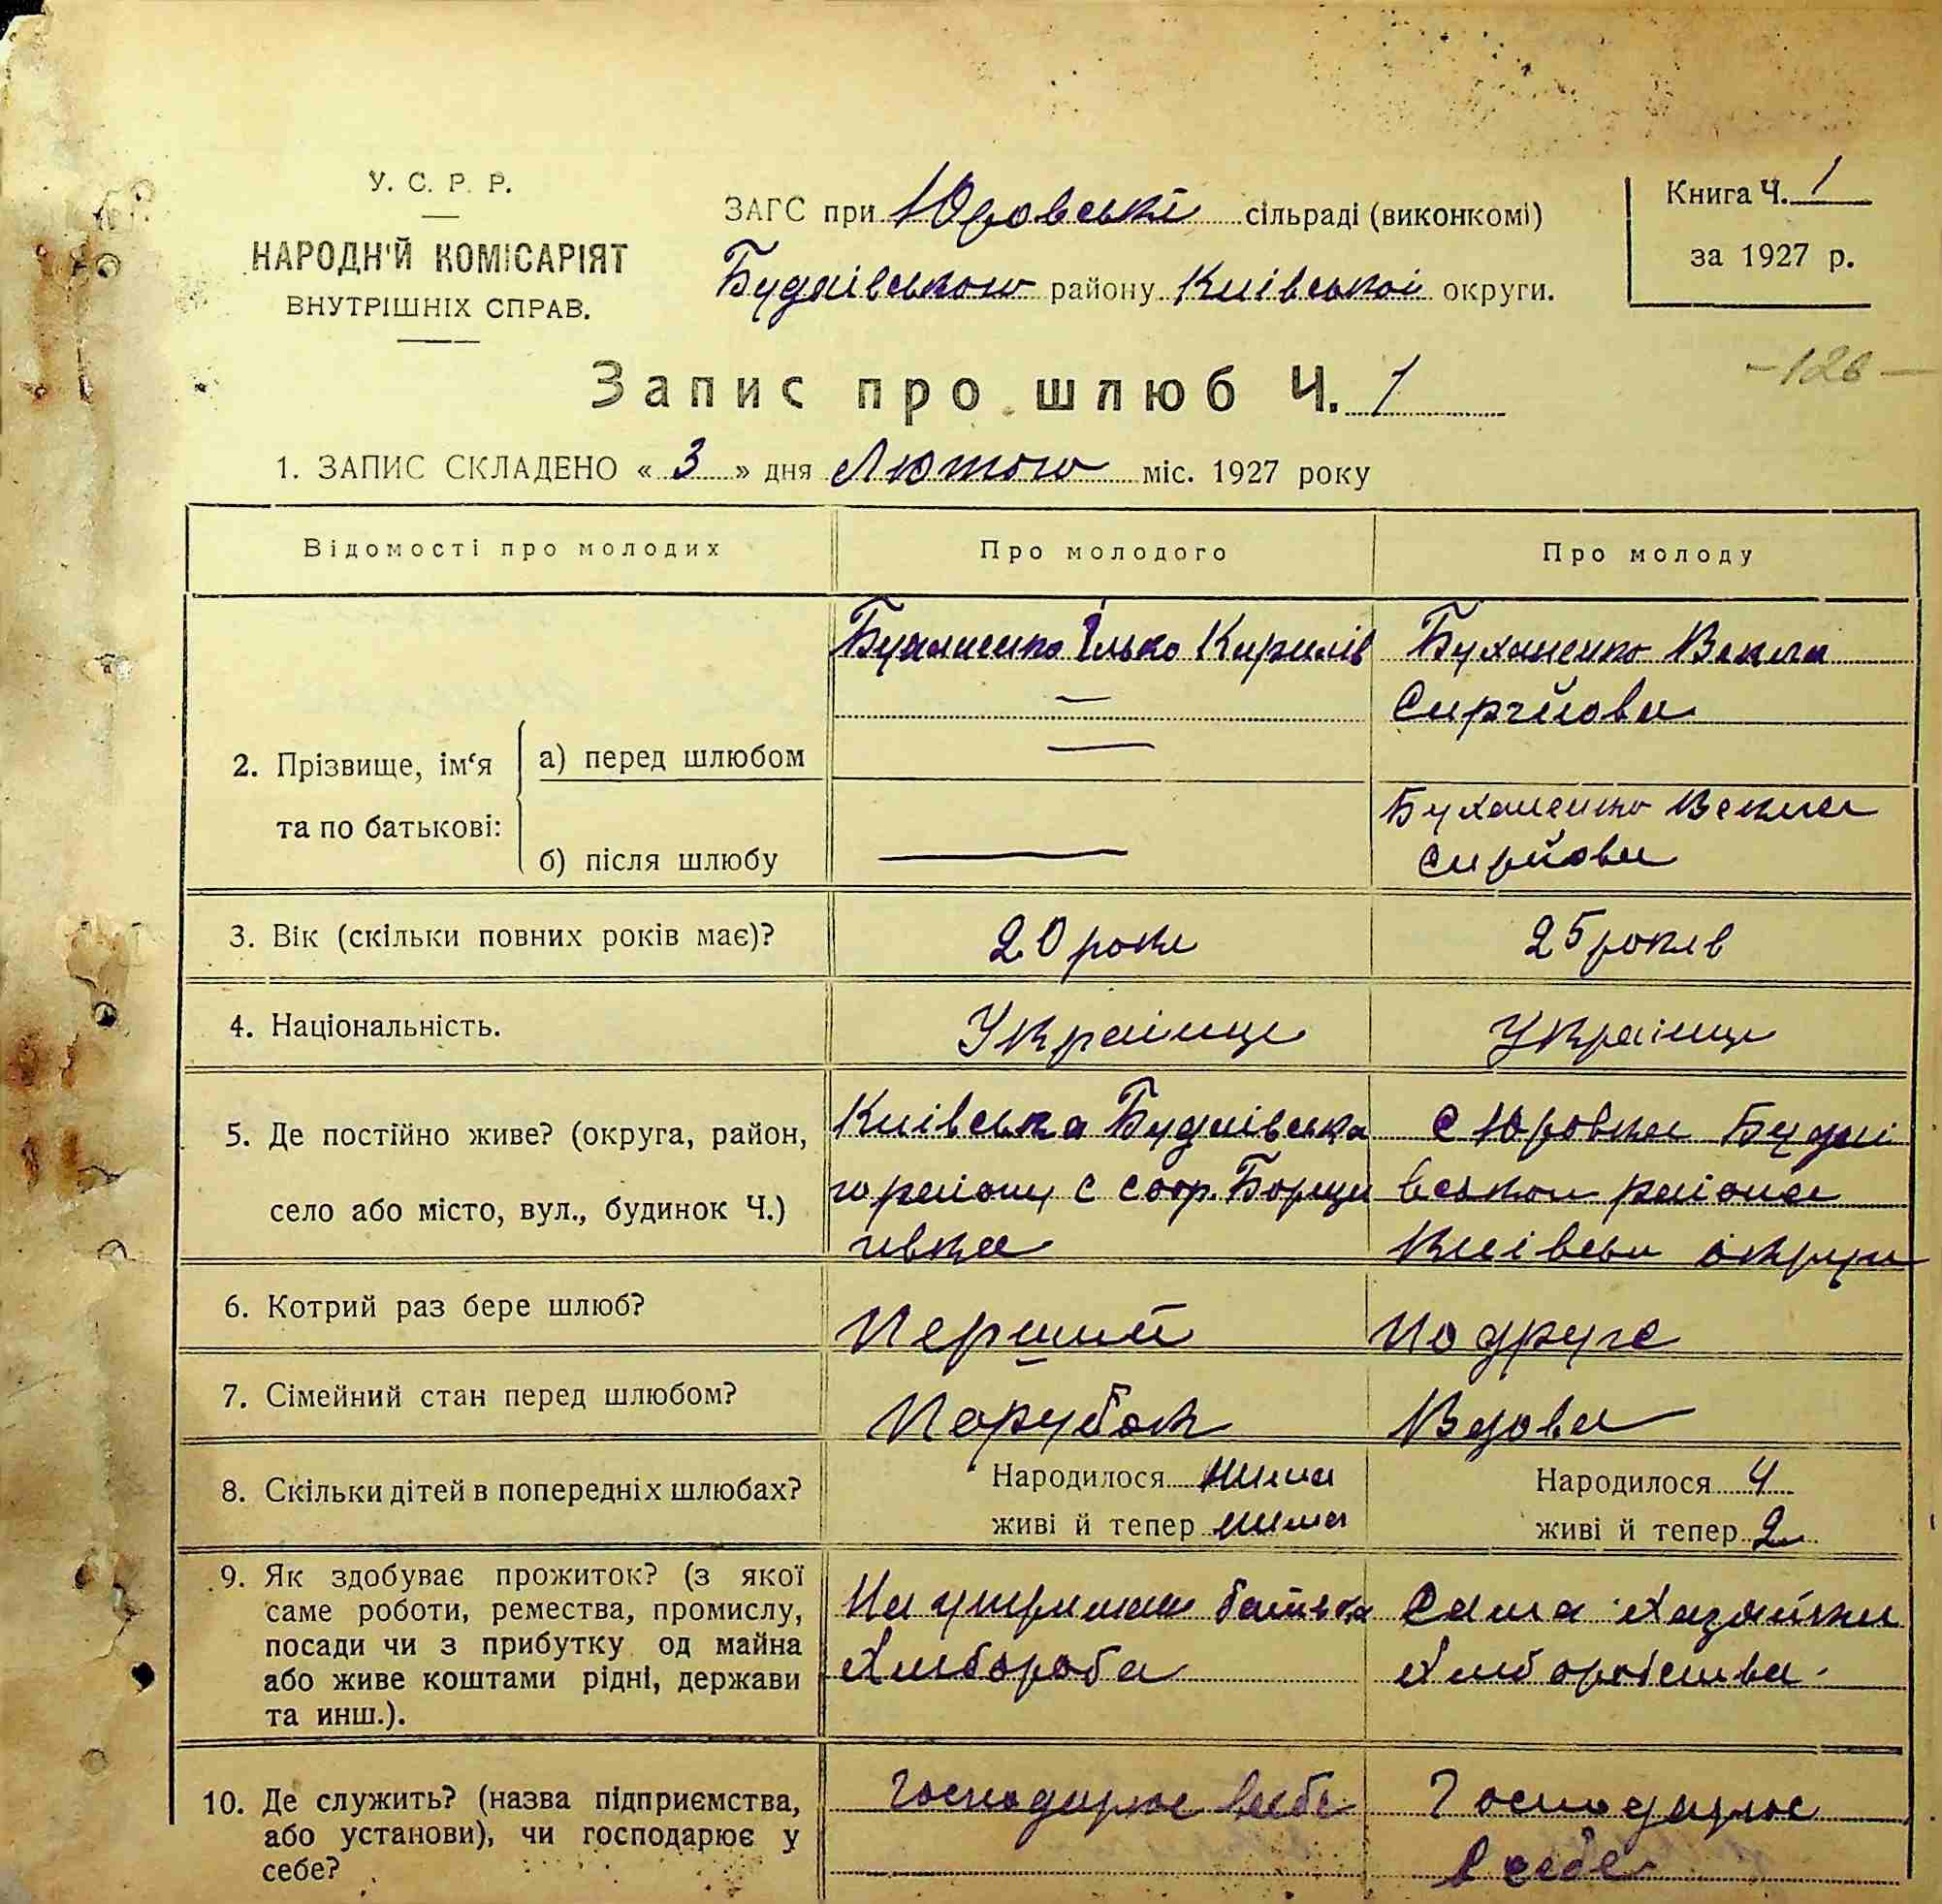 У. С. Р. Р.
НАРОДН'Й КОМІСАРІЯТ
ВНУТРІШНІХ СПРАВ.
ЗАГС при Юровські сільраді (виконкомі)
Будаівського району Киівськой округи.
Книга Ч. 1
за 1927 р.
Запис про шлюб Ч. 1
1. ЗАПИС СКЛАДЕНО « 3 » дня Лютого міс. 1927 року
Відомості про молодих
Про молодого
Про молоду
2. Прізвище, ім‘я
та по батькові:
а) перед шлюбом
б) після шлюбу
Ілько Кирилів
Буханенко Векла
Сиргійова
Буханенко Векла
3. Вік (скільки повних років має)?
20 роки
25 років
4. Національність.
Украінце
Украінце
5. Де постійно живе? (округа, район,
село або місто, вул., будинок Ч.)
Киівська Будаівська
го району с Соф. Борща
гивка
с Юровка Будаі
вського района
Киівськ округи
6. Котрий раз бере шлюб?
Перший
Подруге
7. Сімейний стан перед шлюбом?
Парубок
Вдова
8. Скільки дітей в попередніх шлюбах?
Народилося нима
живі й тепер нима
Народилося 4
живі й тепер 2
9. Як здобуває прожиток? (з якої
саме роботи, ремества, промислу,
посади чи з прибутку од майна
або живе коштами рідні, держави
та инш.).
На утриман батька
Хлібороба
Сама Хазяйка
Хліборобства
10. Де служить? (назва підприємства,
або установи), чи господарює у
себе?
Господарює всебе
Господарює
в себе